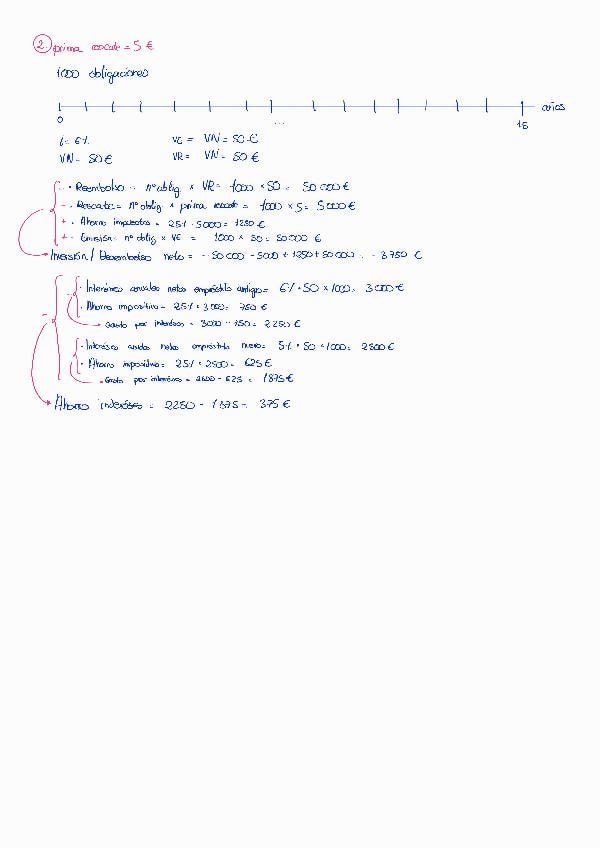 2. prima rescate = 5 €
1000 obligaciones
años
0 ... 15
i = 6% VE = VN = 50 €
VN = 50 € VR = VN = 50 €
- · Reembolso = nº oblig × VR = 1000 × 50 = 50 000 €
- · Rescate = nº oblig × prima rescate = 1000 × 5 = 5000 €
+ · Ahorro impuestos = 25% · 5000 = 1250 €
+ · Emisión = nº oblig × VE = 1000 × 50 = 50 000 €
Inversión / Desembolso neto = - 50 000 - 5000 + 1250 + 50 000 = - 3750 €
· Intereses anuales netos empréstito antiguo = 6% · 50 × 1000 = 3000 €
· Ahorro impositivo = 25% · 3000 = 750 €
Gasto por intereses = 3000 - 750 = 2250 €
· Intereses anuales netos empréstito nuevo = 5% · 50 · 1000 = 2500 €
· Ahorro impositivo = 25% · 2500 = 625 €
Gasto por intereses = 2500 - 625 = 1875 €
Ahorro intereses = 2250 - 1875 = 375 €